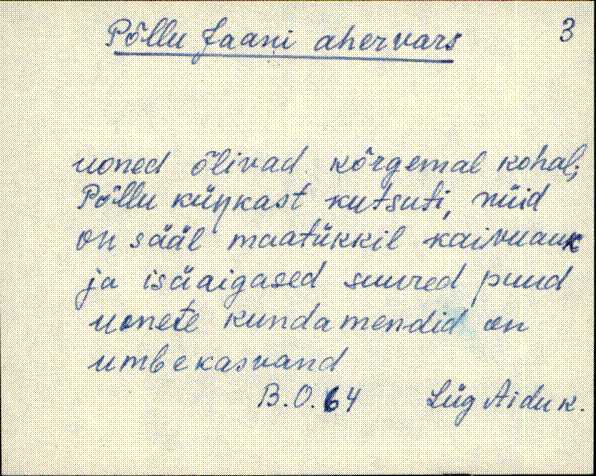 Põllu Jaani ahervars 3
uoned õlivad kõrgemal kohal;
Põllu küŋkast kutsuti, nüid
on sääl maatükkil kaivuauk
ja isäaigased suured puud
uonete kundamendid on
umbekasvand
B.O.64 Lüg Aidu k.